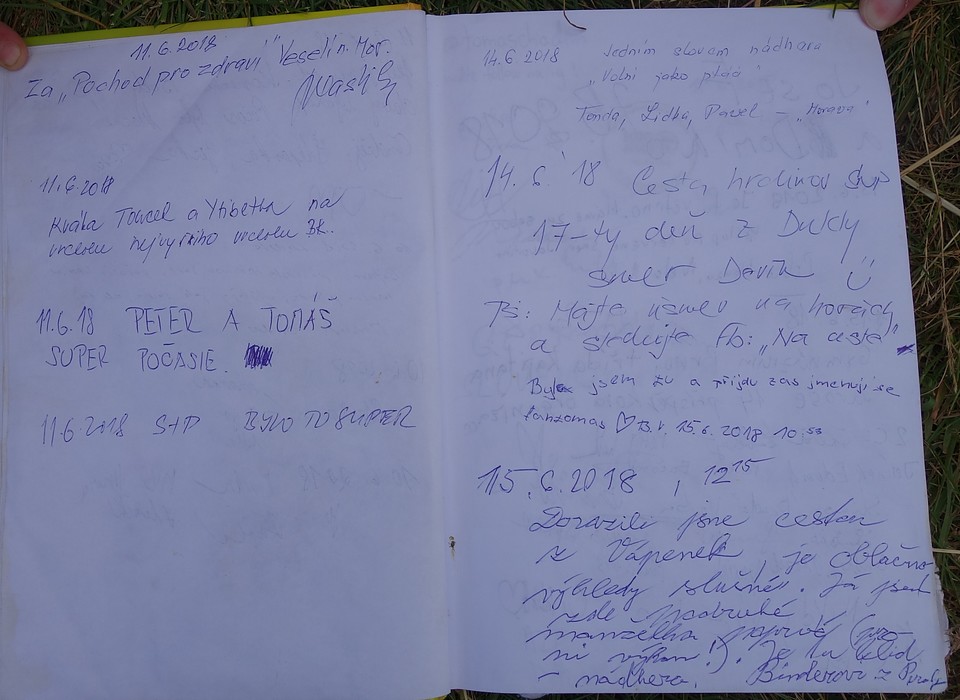 11.6.2018
Za „Pochod pro zdraví" Veselí n. Mor.
11.6.2018
a na
vrcholu
11.6.18 PETER A TOMÁŠ
SUPER POČASIE.
11.6.2018 S+P BYLO TO SUPER
14.6 2018 Jedním slovem nádhera
„Volní jako ptáci"
Tonda, Lidka, Pavel – „Morava"
14. 6 '18 Cesta hrdinov SNP
17-ty deň z Dukly
smer Devín
PS: Majte úsmev na horách
a sledujte fb: „Na ceste"
Byla jsem tu a přijdu zas jmenuji se
fantomas ♡ B.V. 15.6.2018 10 53
15.6.2018, 12 15
Dorazili jsme cestou
z Vápenek, je oblačno
výhledy slušné. Já jsem
zde podruhé
manželka poprvé (pro
ni výkon!). Je tu klid
– nádhera. z